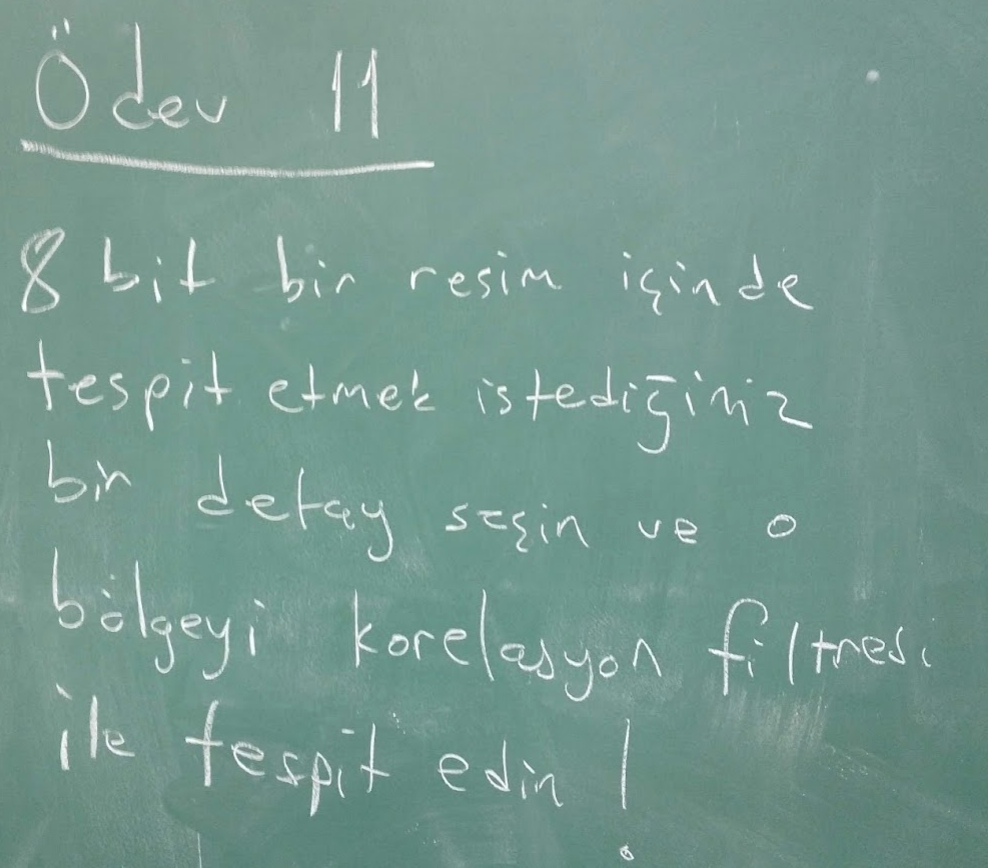 Ödev 11
8 bit bir resim içinde
tespit etmek istediğiniz
bir detay seçin ve o
bölgeyi korelasyon filtresi
ile tespit edin !